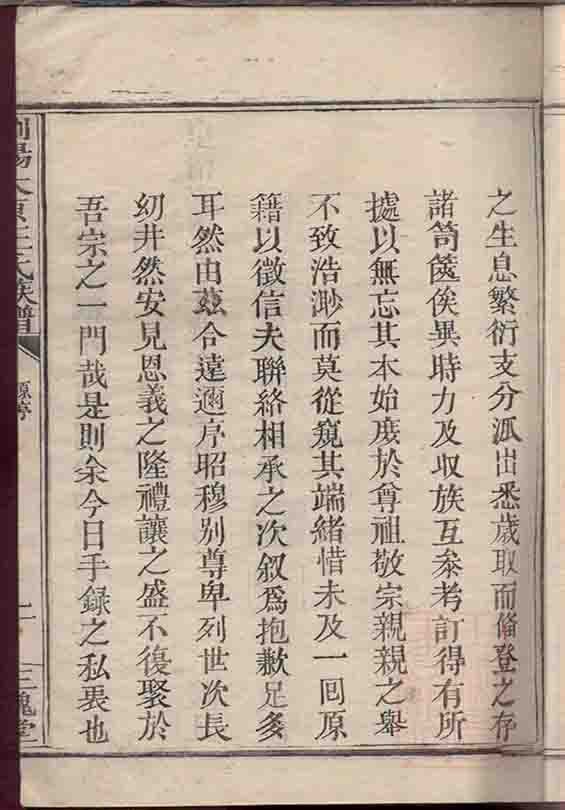 之生息繁衍支分派出悉歲取而俻登之存
諸笥篋俟異時力及収族互叅考訂得有所
據以無忘其本始庻於尊祖敬宗親親之舉
不致浩渺而莫從窺其端緒惜未及一回原
籍以徵信夫聯絡相承之次叙爲抱歉足多
耳然由兹合遠邇序昭穆别尊卑列世次長
幼井然安見恩義之隆禮讓之盛不復聚於
吾宗之一門哉是則余今日手録之私衷也
瀏陽太原王氏族譜
源序
三槐堂